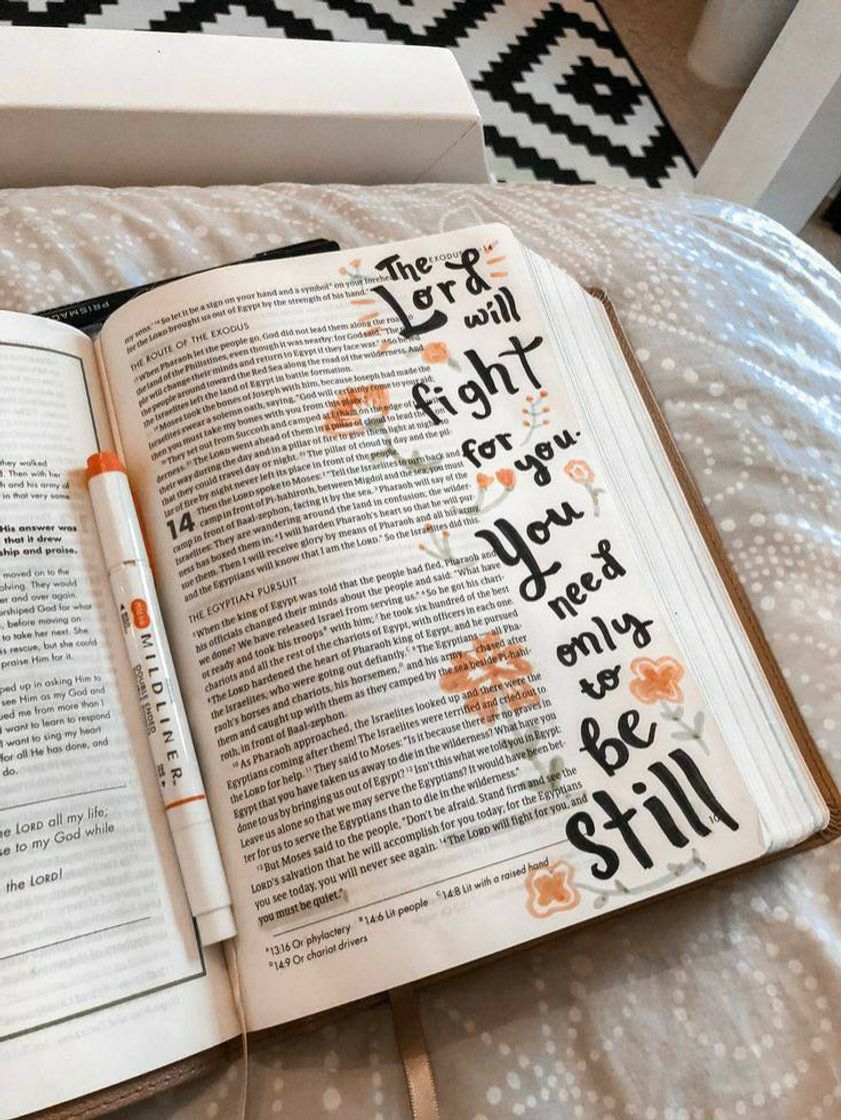 they walked
d. Then with her
h and his army of
in that very same
His answer was
that it drew
ship and praise.
moved on to the
olving. They would
er and over again.
orshiped God for what
e, before moving on
to take her next. She
is rescue, but she could
praise Him for it.
ped up in asking Him to
see Him as my God and
ued me from more than I
want to learn to respond
I want to sing my heart
for all He has done, and
do.
e LORD all my life;
se to my God while
the LORD!
PRISMA
MILDLINER
DOUBLE ENDED
my sons.' 16 So let it be a sign on your hand and a symbol A on your forehe
for the LORD brought us out of Egypt by the strength of his hand."
THE ROUTE OF THE EXODUS
17 When Pharaoh let the people go, God did not lead them along the road to
the land of the Philistines, even though it was nearby; for God said, "The peo
ple will change their minds and return to Egypt if they face war." 18 So he led
the people around toward the Red Sea along the road of the wilderness. And
the Israelites left the land of Egypt in battle formation.
19 Moses took the bones of Joseph with him, because Joseph had made the
Israelites swear a solemn oath, saying, "God will certainly come to your aid;
then you must take my bones with you from this place."
20 They set out from Succoth and camped at Etham on the edge of the wil
derness. 21 The LORD went ahead of them in a pillar of cloud to lead them on
their way during the day and in a pillar of fire to give them light at night, so
that they could travel day or night. 22 The pillar of cloud by day and the pil
lar of fire by night never left its place in front of the people.
14 Then the LORD spoke to Moses: 2 "Tell the Israelites to turn back and
camp in front of Pi-hahiroth, between Migdol and the sea; you must
camp in front of Baal-zephon, facing it by the sea. 3 Pharaoh will say of the
Israelites: They are wandering around the land in confusion; the wilder-
ness has boxed them in. 4 I will harden Pharaoh's heart so that he will pur
sue them. Then I will receive glory by means of Pharaoh and all his army,
and the Egyptians will know that I am the LORD." So the Israelites did this.
THE EGYPTIAN PURSUIT
5 When the king of Egypt was told that the people had fled, Pharaoh and
his officials changed their minds about the people and said: "What have
we done? We have released Israel from serving us." 6 So he got his chari-
ot ready and took his troops B with him; 7 he took six hundred of the best
chariots and all the rest of the chariots of Egypt, with officers in each one.
8 The LORD hardened the heart of Pharaoh king of Egypt, and he pursued
the Israelites, who were going out defiantly. C 9 The Egyptians—all Pha
raoh's horses and chariots, his horsemen, D and his army—chased after
them and caught up with them as they camped by the sea beside Pi-hahi-
roth, in front of Baal-zephon.
10 As Pharaoh approached, the Israelites looked up and there were the
Egyptians coming after them! The Israelites were terrified and cried out to
the LORD for help. 11 They said to Moses: "Is it because there are no graves in
Egypt that you have taken us away to die in the wilderness? What have you
done to us by bringing us out of Egypt? 12 Isn't this what we told you in Egypt:
Leave us alone so that we may serve the Egyptians? It would have been bet-
ter for us to serve the Egyptians than to die in the wilderness."
13 But Moses said to the people, "Don't be afraid. Stand firm and see the
LORD's salvation that he will accomplish for you today; for the Egyptians
you see today, you will never see again. 14 The LORD will fight for you, and
you must be quiet."
A 13:16 Or phylactery B 14:6 Lit people C 14:8 Lit with a raised hand
D 14:9 Or chariot drivers
EXODUS
14
The
Lord
will
fight
for
you.
You
need
only
to
be
still